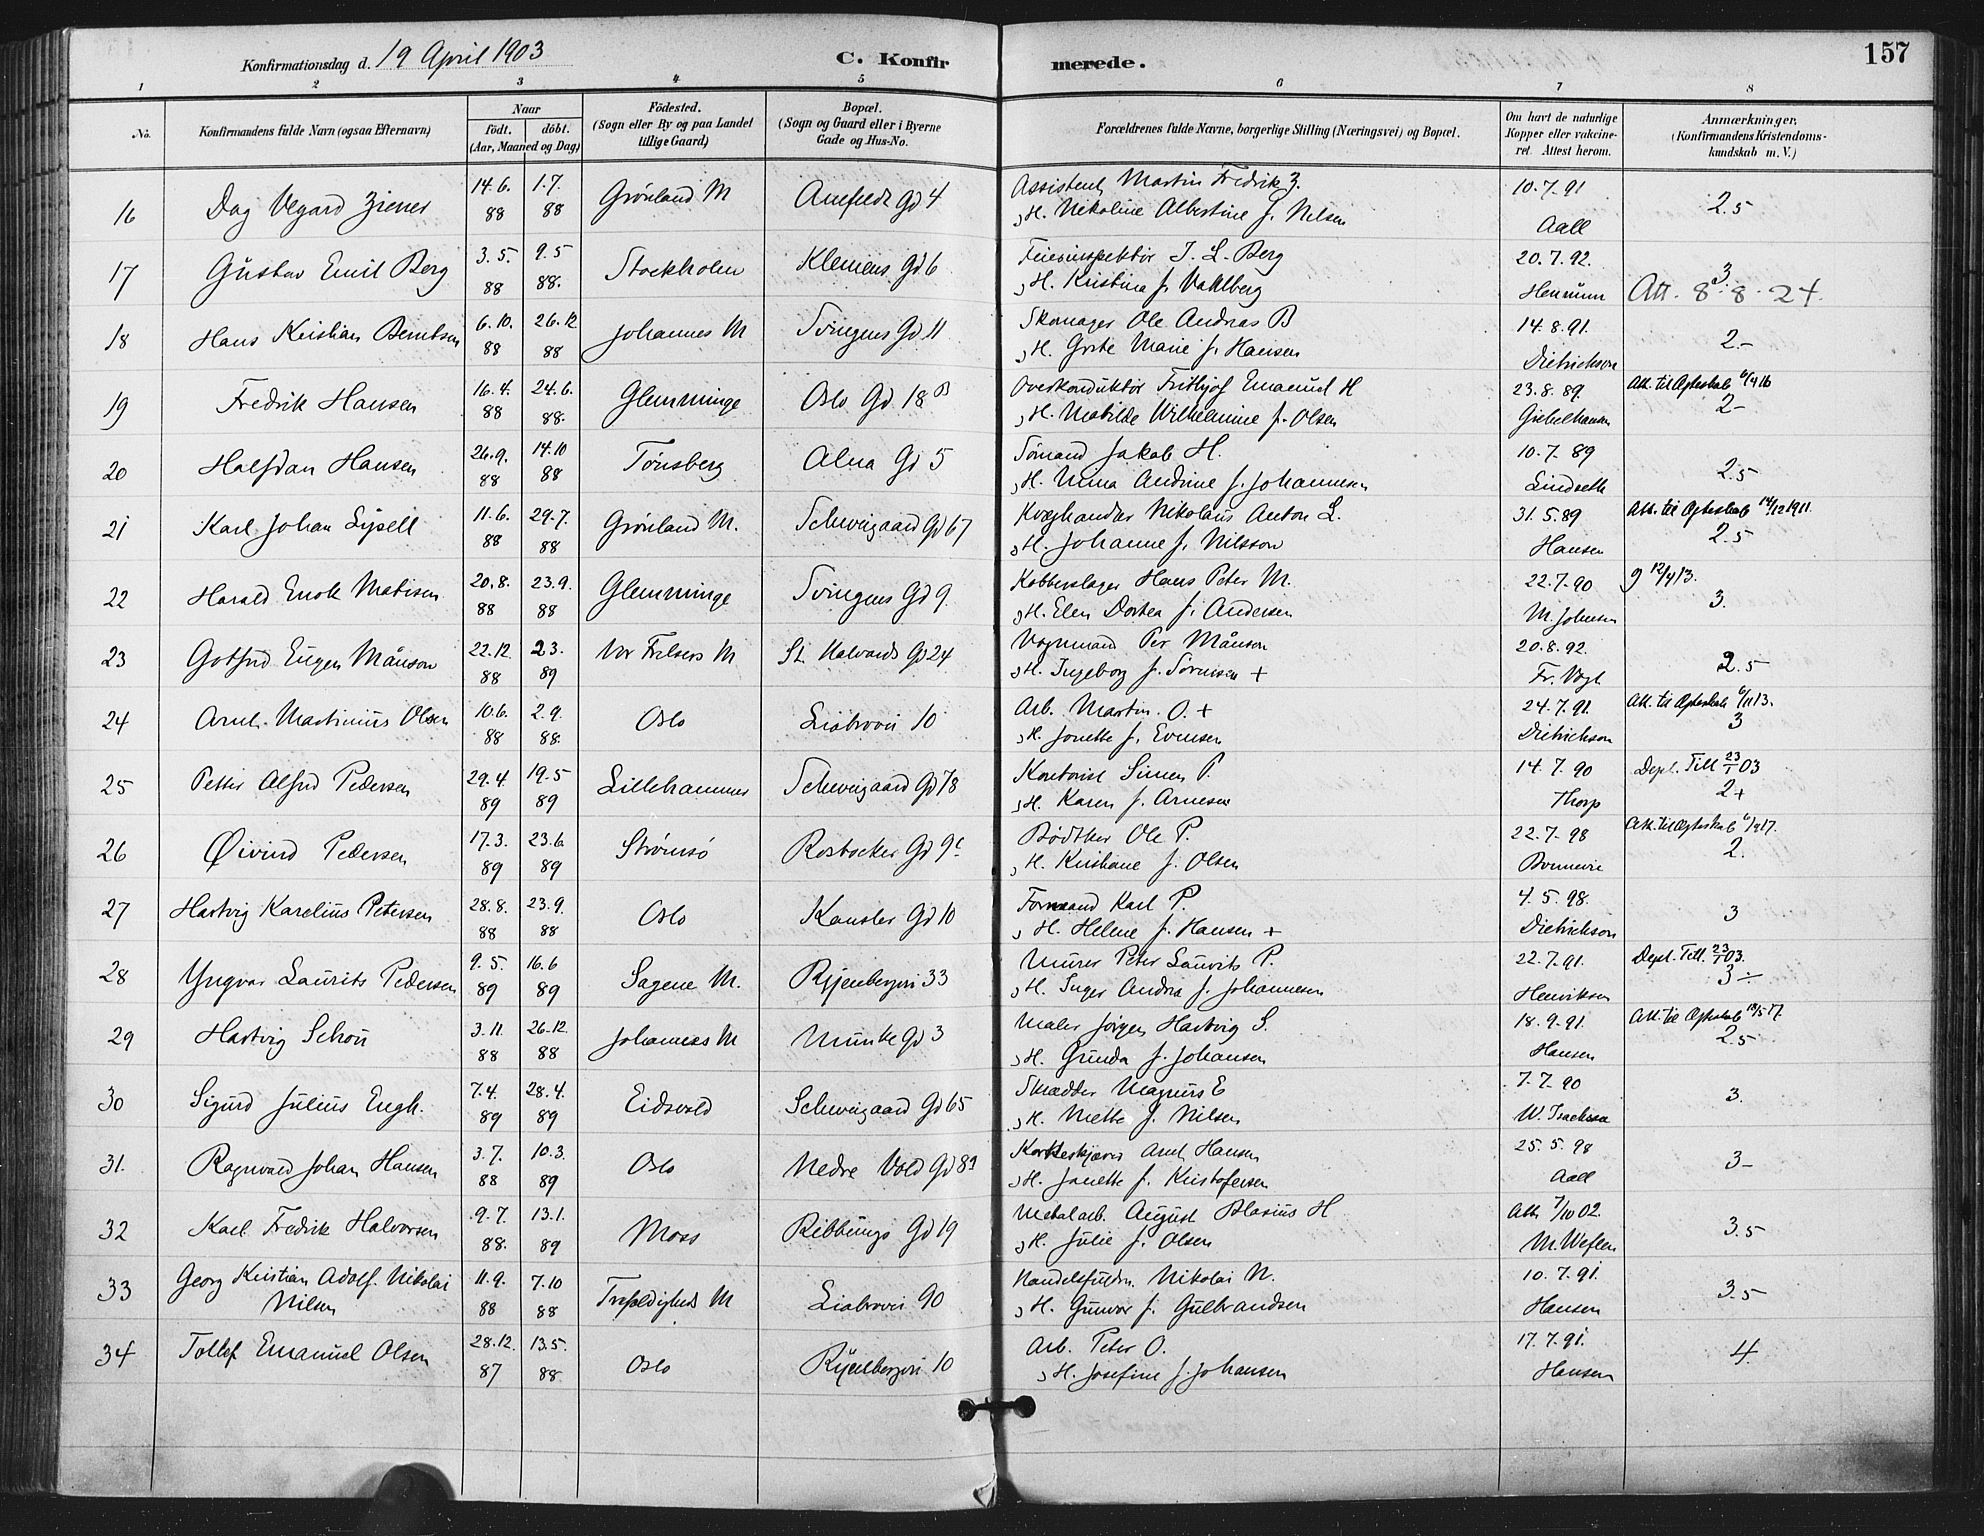 Konfirmationsdag d. 19 April 1903 C. Konfirmerede. 157
1 2 3 4 5 6 7 8
No. Konfirmandens fulde Navn (ogsaa Efternavn) Naar födt. döbt. (Aar, Maaned og Dag) Födested. (Sogn eller By og paa Landet tillige Gaard) Bopæl. (Sogn og Gaard eller i Byerne Gade og Hus-No. Forældrenes fulde Navne, borgerlige Stilling (Næringsvei) og Bopæl. Om havt de naturlige Kopper eller vakcineret. Attest herom. Anmærkninger, (Konfirmandens Kristendomskundskab m. V.)
16 Dag Vegard Ziener 14.6. 88 1.7. 88 Grönland M Gd 4 Assistent Martin Fredrik Z. 10.7.91
H. Nikoline Albertine f. Nilsen Aall 2.5
17 Gustav Emil Berg 3.5. 88 9.5 88. Stockholm Klemens Gd 6 Feierinspektör J. L. Berg 20.7.92.
H. Kristina f. Vahlberg 3 Att. 8.8.24.
18 Hans Kristian Berntsen 6.10. 88 26.12 88 Johannes M Svingens Gd 11 Skomager Ole Andreas B 14.8.91.
H. Grete Marie f. Hansen Dietrichson 2.-
19 Fredrik Hansen 16.4. 88 24.6. 88. Glemminge Oslo Gd 18 B Overkonduktör Fritjof Emanuel H 23.8.89. Att. til Ægteskab 6/4 16
H. Matilde Wilhelmine f. Olsen Giebelhausen 2-
20 Halfdan Hansen 26.9. 88 14.10 88 Tönsberg Alna Gd 5 Sömand Jakob H. 10.7.89
H. Anna Andrine f. Johannesen Lindseth 2.5
21 Karl Johan Lysell 11.6. 88 29.7. 88 Grönland M. Schweigaard Gd 67 Kvæghandler Nikolaus Anton L. 31.5.89 Att. til Ægteskab 14/12 1911.
H. Johanne f. Nilsson Hansen 2.5
22 Harald Enok Matisen 20.8. 88 23.9. 88 Glemminge Svingens Gd 9. Kobberslager Hans Peter M. 22.7.90 g 12/4 13.
H. Elen Dortea f. Andersen M. Johnsen 3.
23 Gotfred Eugen Månson 22.12. 88 2.3. 89 Vor Frelsers M St. Halvards Gd 24 Vognmand Per Månson 20.8.92.
H. Ingeborg f. Sörensen + Fr. Vogt 2.5
24 Arnt Martinius Olsen 10.6. 88 2.9. 88. Oslo Liabrovei 10 Arb. Martin O. + 24.7.91. Att. til Ægteskab 6/11 13.
H. Jonette f. Evensen Dietrichson 3
25 Petter Alfred Pedersen 29.4. 89 19.5 89 Lillehammer Schweigaard Gd 78 Kontorist Simen P. 14.7.90 Depl. Till 23/1 03
H. Karen f. Arnesen Thorp 2+
26 Øivind Pedersen 17.3. 89 23.6. 89 Strömsö Rostocker Gd 9 c Bödtker Ole P. 22.7.98 Att. til Ægteskab 6/9 17.
H. Kristiane f. Olsen Bonnevie 2.
27 Hartvig Karelius Petersen 28.8. 88 23.9. 88 Oslo Kansler Gd 10 Formand Karl P. 4.5.98.
H. Helene f. Hansen + Dietrichson 3
28 Yngvar Laurits Pedersen 9.5. 89 16.6 89 Sagene M. Ryenbergvei 33 Murer Peter Laurits P. 22.7.91. Depl. Till. 23/1 03.
H. Inger Andrea f. Johannesen Henriksen 3÷
29 Hartvig Schou 3.11. 88 26.12. 88 Johannes M Munke Gd 3 Maler Jörgen Hartvig S. 18.9.91. Att. til Ægteskab 18/5 17.
H. Gunda f. Johansen Hansen 2.5
30 Sigurd Julius Engh. 7.4. 89 28.4. 89 Eidsvold Schweigaard Gd 65 Skrædder Magnus E 7.7.90
H. Mette f. Nilsen W. Isachsen 3.
31. Ragnvald Johan Hansen 3.7. 88 10.3. 89 Oslo Nedre Vold Gd 89 Korkeskjærer Arnt Hansen 25.5.98
H. Janette f. Kristofersen Aall 3-
32 Karl Fredrik Halvorsen 9.7. 88. 13.1. 89 Moss Ribbungs Gd 19 Metalarb. August Blasius H Att. 7/10 02.
H. Julie f. Olsen M. Weflen 3.5
33 Georg Kristian Adolf Nikolai Nilsen 11.9. 88 7.10 88 Trefoldigheds M Liabrovei 90 Handelsfuldm. Nikolai N. 10.7.91.
H. Gunvor f. Gulbrandsen Hansen 3.5
34 Tollef Emanuel Olsen 28.12. 87 13.5. 88. Oslo Ryenbergvei 10 Arb. Peter O. 17.7.91.
H. Josefine f. Johansen Hansen 4.